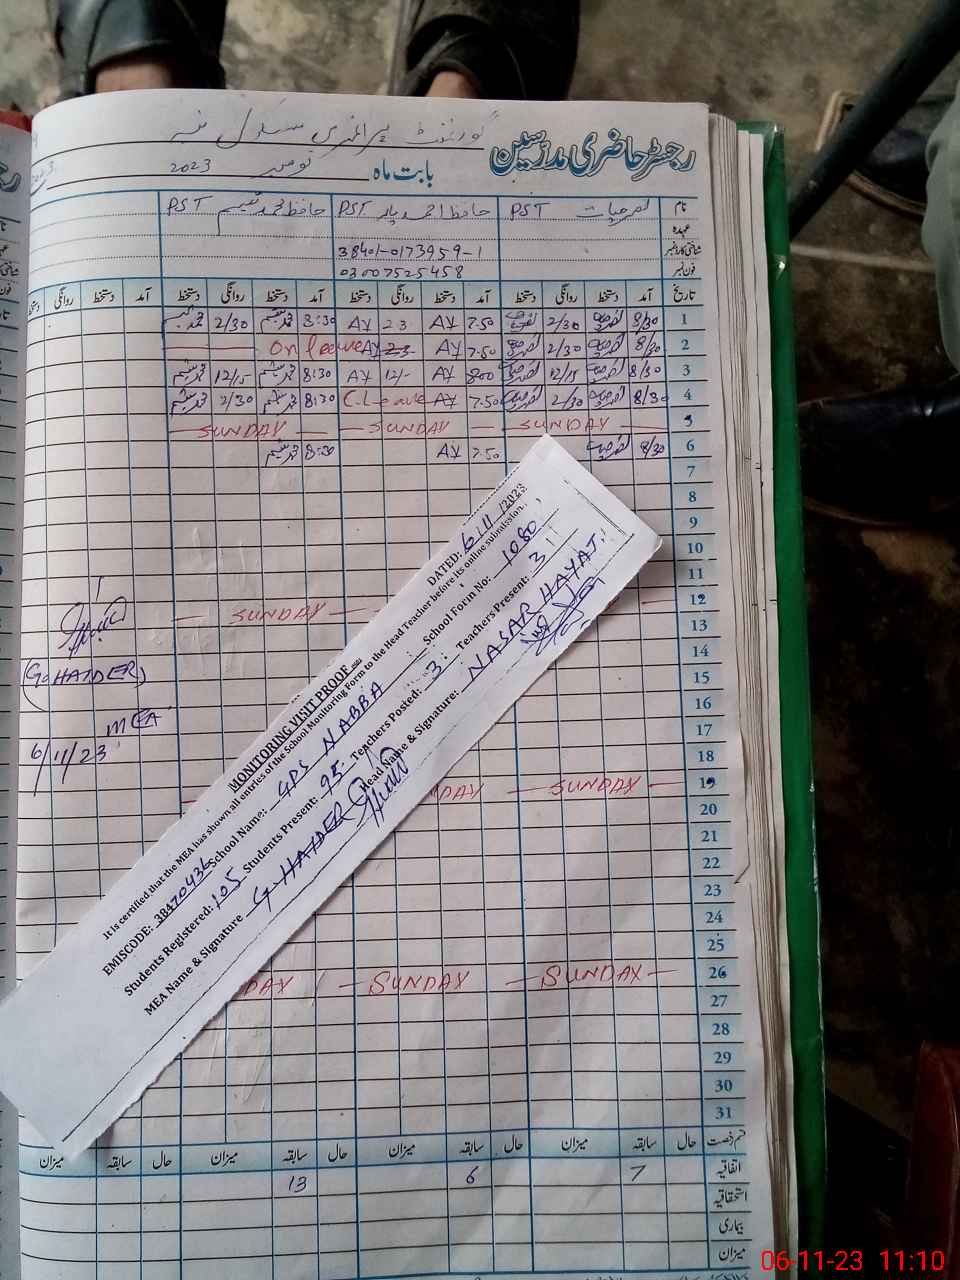 گورنمنٹ پرائمری سکول نبہ
رجسٹر حاضری مدرسین
بابت ماہ نومبر 2023
نام نصرحیات PST حافظ احمد یار PST حافظ محمد نسیم PST
عہدہ
شناختی کارڈ نمبر 38401-0173959-1
فون نمبر 03007525458
تاریخ آمد دستخط روانگی دستخط آمد دستخط روانگی دستخط آمد دستخط روانگی دستخط آمد دستخط روانگی دستخط
1 8/30 2/30 7.50 AY 2 3 AY 8:30 2/30
2 8/30 2/30 7.50 AY 2 3 AY On leave
3 8/30 12/15 800 AY 12/- AY 8:30 12/15
4 8/30 2/30 7.50 AY C.Leave 8:30 2/30
5 SUNDAY SUNDAY SUNDAY
6 8/30 7.50 AY 8:30
7
8
9
10
11
12 SUNDAY
13
14
15
16
17
18
19 SUNDAY DAY
20
21
22
23
24
25
26 SUNDAY SUNDAY DAY
27
28
29
30
31
قسم رخصت حال سابقہ میزان حال سابقہ میزان حال سابقہ میزان حال سابقہ میزان
اتفاقیہ 7 6 13
استحقاقیہ
بیماری
میزان
(G. HAIDER)
MEA
6/11/23
MONITORING VISIT PROOF
DATED: 6/11/2023
It is certified that the MEA has shown all entries of the School Monitoring Form to the Head Teacher before its online submission.
EMISCODE: 38470436 School Name: GPS NABBA School Form No: 1080
Students Registered: 105 Students Present: 95 Teachers Posted: 3 Teachers Present: 3
MEA Name & Signature G HAIDER Head Name & Signature: NASAR HAYAT
06-11-23 11:10